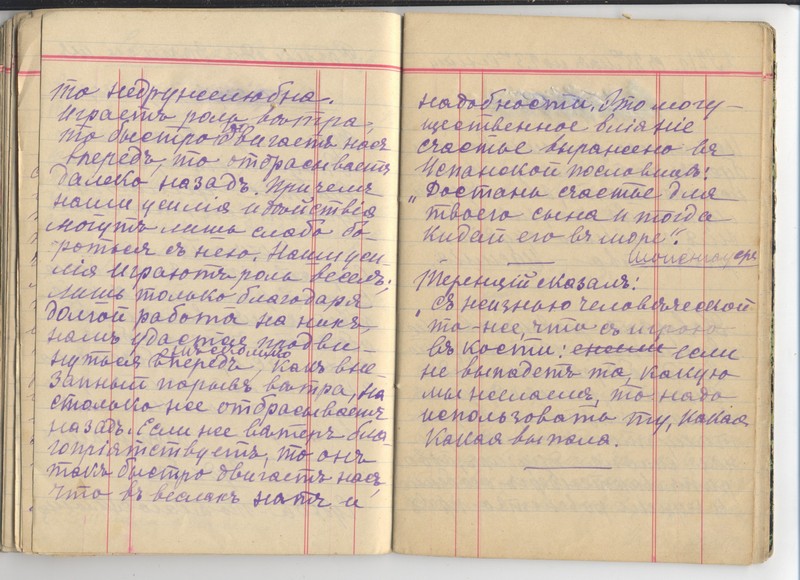 то недружелюбна.
играетъ роль вѣтра,
то быстро двигаетъ насъ
впередъ, то отбрасываетъ
далеко назадъ. Причемъ
наши усилія и дѣйствія
могутъ лишь слабо бо-
роться съ нею. Наши уси-
лія играютъ роль веселъ;
лишь только благодаря
долгой работѣ на нихъ
намъ удастся продви-
нуться настолько впередъ, какъ вне-
запный порывъ вѣтра, на
столько же отбрасываетъ
назадъ. Если же вѣтеръ бла
гопріятствуетъ, то онъ
такъ быстро двигаетъ насъ,
что въ веслахъ нѣтъ и
надобности. Это могу-
щественное вліяніе
счастье выражено въ
Испанской пословицѣ:
„Достань счастье для
твоего сына и тогда
кидай его въ море“.
Шопенгауеръ
Теренцій сказалъ:
„Съ жизнью человѣческой
то-же, что съ игрою
въ кости: если
не выпадетъ та, какую
мы желаемъ, то надо
использовать ту, какая
какая выпала.